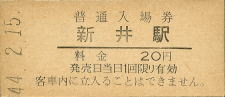 44.2.15.
普通入場券
新井駅
料金 20円
発売日当日1回限り有効
客車内に立入ることはできません。